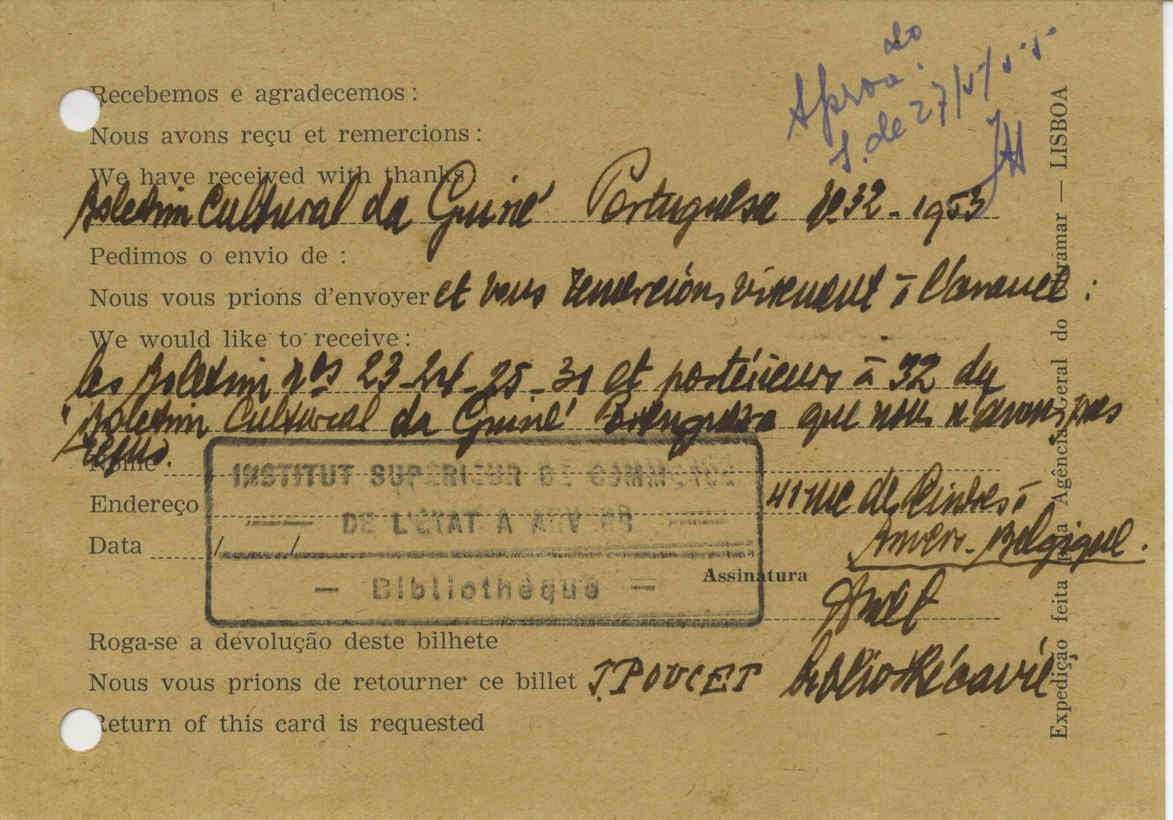 Recebemos e agradecemos :
Nous avons reçu et remercions :
We have received with thanks
Boletim Cultural da Guiné Portuguesa Nº 32 - 1953
Pedimos o envio de :
Nous vous prions d'envoyer et vous remercions vivement à l'avance :
We would like to receive :
les Boletim nºs 23-24-25-31 et postérieurs à 32 du
"Boletim Cultural da Guiné Portuguesa que nous n'avons pas
reçus.
Nome
Endereço
Data / /
INSTITUT SUPÉRIEUR DE COMMERCE
DE L'ÉTAT A ANVERS
— Bibliothèque —
41 rue des Peintres à
Anvers - Belgique.
Assinatura
Roga-se a devolução deste bilhete
Nous vous prions de retourner ce billet J. POUCET bibliothécaire
Return of this card is requested
de 27/5/55
Expedição feita pela Agência Geral do Ultramar — LISBOA